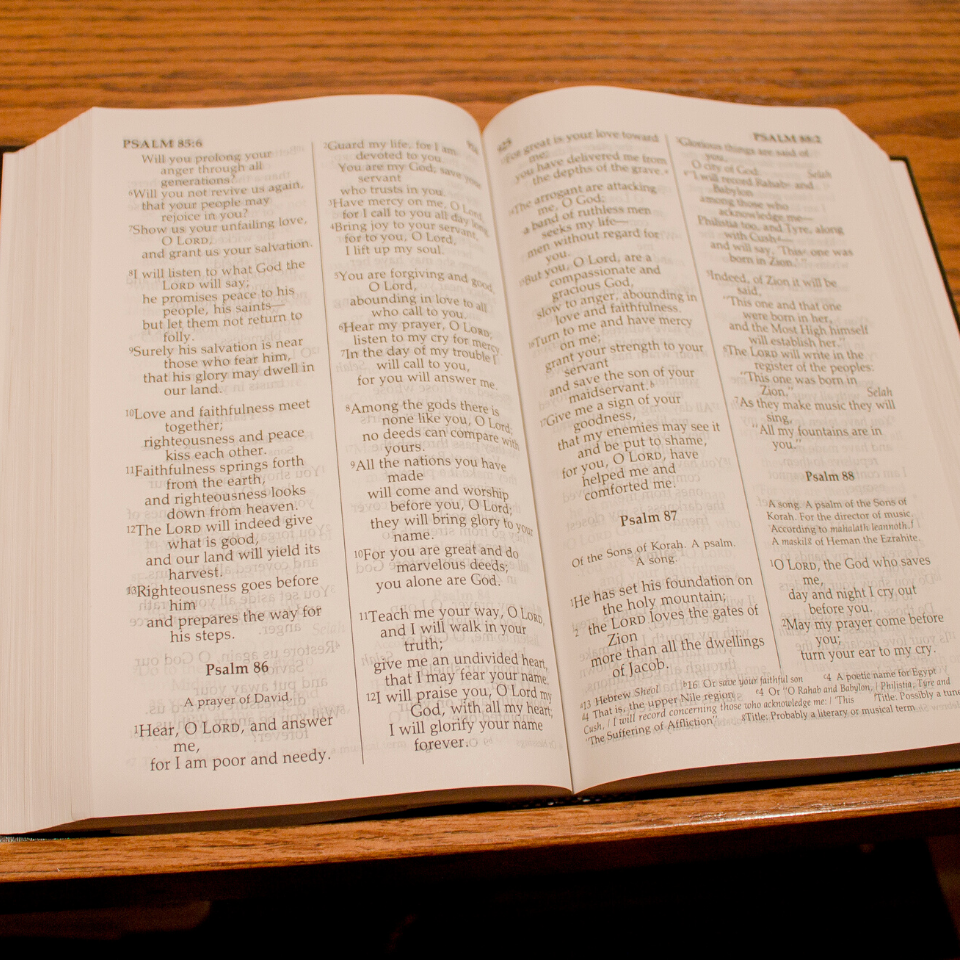 PSALM 85:6
Will you prolong your
anger through all
generations?
⁶Will you not revive us again,
that your people may
rejoice in you?
⁷Show us your unfailing love,
O LORD,
and grant us your salvation.
⁸I will listen to what God the
LORD will say;
he promises peace to his
people, his saints—
but let them not return to
folly.
⁹Surely his salvation is near
those who fear him,
that his glory may dwell in
our land.
¹⁰Love and faithfulness meet
together;
righteousness and peace
kiss each other.
¹¹Faithfulness springs forth
from the earth,
and righteousness looks
down from heaven.
¹²The LORD will indeed give
what is good,
and our land will yield its
harvest.
¹³Righteousness goes before
him
and prepares the way for
his steps.
Psalm 86
A prayer of David.
¹Hear, O LORD, and answer
me,
for I am poor and needy.
²Guard my life, for I am
devoted to you.
You are my God; save your
servant
who trusts in you.
³Have mercy on me, O Lord,
for I call to you all day long.
⁴Bring joy to your servant,
for to you, O Lord,
I lift up my soul.
⁵You are forgiving and good,
O Lord,
abounding in love to all
who call to you.
⁶Hear my prayer, O LORD;
listen to my cry for mercy.
⁷In the day of my trouble I
will call to you,
for you will answer me.
⁸Among the gods there is
none like you, O Lord;
no deeds can compare with
yours.
⁹All the nations you have
made
will come and worship
before you, O Lord;
they will bring glory to your
name.
¹⁰For you are great and do
marvelous deeds;
you alone are God.
¹¹Teach me your way, O LORD,
and I will walk in your
truth;
give me an undivided heart,
that I may fear your name.
¹²I will praise you, O Lord my
God, with all my heart;
I will glorify your name
forever.
PSALM 88:2
¹³For great is your love toward
me;
you have delivered me from
the depths of the grave.ᵃ
¹⁴The arrogant are attacking
me, O God;
a band of ruthless men
seeks my life—
men without regard for
you.
¹⁵But you, O Lord, are a
compassionate and
gracious God,
slow to anger, abounding in
love and faithfulness.
¹⁶Turn to me and have mercy
on me;
grant your strength to your
servant
and save the son of your
maidservant.ᵇ
¹⁷Give me a sign of your
goodness,
that my enemies may see it
and be put to shame,
for you, O LORD, have
helped me and
comforted me.
Psalm 87
Of the Sons of Korah. A psalm.
A song.
¹He has set his foundation on
the holy mountain;
² the LORD loves the gates of
Zion
more than all the dwellings
of Jacob.
³Glorious things are said of
you,
O city of God: Selah
⁴"I will record Rahab and
Babylon
among those who
acknowledge me—
Philistia too, and Tyre, along
with Cush—
and will say, 'This one was
born in Zion.'"
⁵Indeed, of Zion it will be
said,
"This one and that one
were born in her,
and the Most High himself
will establish her."
⁶The LORD will write in the
register of the peoples:
"This one was born in
Zion." Selah
⁷As they make music they will
sing,
"All my fountains are in
you."
Psalm 88
A song. A psalm of the Sons of
Korah. For the director of music.
According to mahalath leannoth.
A maskil of Heman the Ezrahite.
¹O LORD, the God who saves
me,
day and night I cry out
before you.
²May my prayer come before
you;
turn your ear to my cry.
13 Hebrew Sheol 16 Or save your faithful son 4 A poetic name for Egypt
4 That is, the upper Nile region 4 Or "O Rahab and Babylon, / Philistia, Tyre and
Cush, / I will record concerning those who acknowledge me: / 'This Title: Possibly a tune,
"The Suffering of Affliction" Title: Probably a literary or musical term